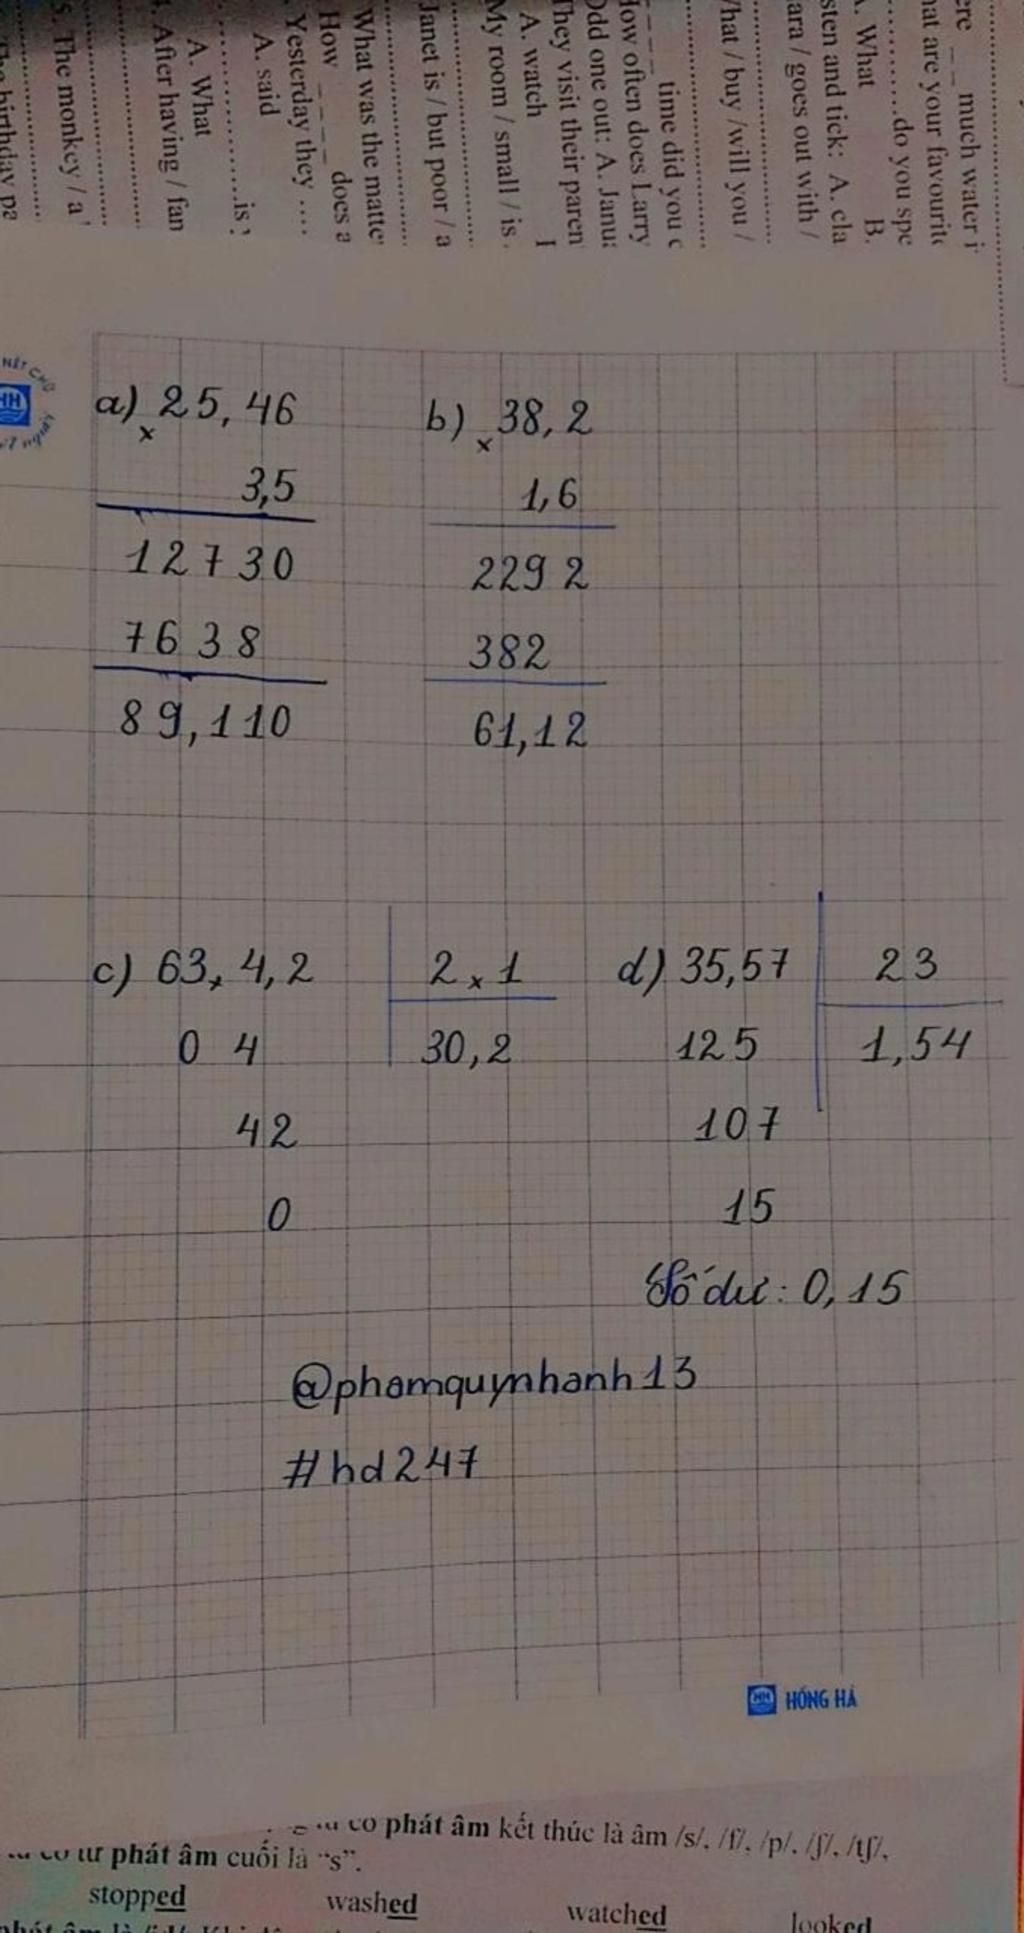 ere ___ much water i
hat are your favourite
.........do you spe
A. What B.
sten and tick: A. cla
ara / goes out with /
hat / buy /will you /
____ time did you c
How often does Larry
Odd one out: A. Janu
They visit their paren
A. watch
My room / small / is
Janet is / but poor / a
What was the matte
How ____ does a
Yesterday they ....
A. said
............is
A. What
After having / fan
5. The monkey / a
birthday pa
NÉT CHỮ
HH
a) 25,46
×
3,5
12730
7638
89,110
b) 38,2
×
1,6
2292
382
61,12
c) 63,4,2 2,1
0 4 30,2
42
0
d) 35,57 23
125 1,54
107
15
Số dư: 0,15
@phamquynhanh13
#hd247
HH HỒNG HÀ
có phát âm kết thúc là âm /s/, /f/, /p/, /ʃ/, /tʃ/,
từ phát âm cuối là “s”.
stopped washed watched looked